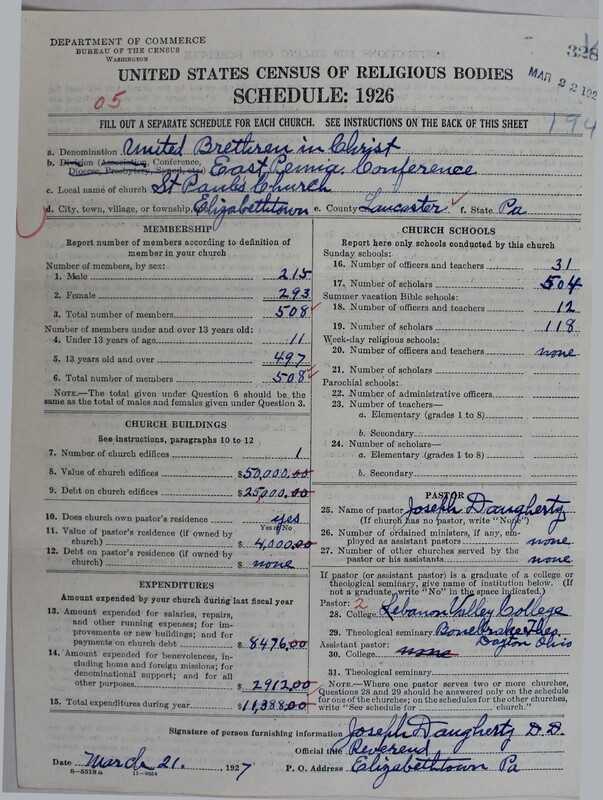 DEPARTMENT OF COMMERCE
BUREAU OF THE CENSUS
WASHINGTON
328
MAR 22 192
UNITED STATES CENSUS OF RELIGIOUS BODIES
SCHEDULE: 1926
05
FILL OUT A SEPARATE SCHEDULE FOR EACH CHURCH. SEE INSTRUCTIONS ON THE BACK OF THIS SHEET
194
a. Denomination United Brethren in Christ
b. Division (Association, Conference, Diocese, Presbytery, Synod, etc.) East Penna. Conference
c. Local name of church St Pauls Church
d. City, town, village, or township Elizabethtown e. County Lancaster f. State Pa
MEMBERSHIP
Report number of members according to definition of
member in your church
Number of members, by sex:
1. Male 215
2. Female 293
3. Total number of members 508
Number of members under and over 13 years old:
4. Under 13 years of age 11
5. 13 years old and over 497
6. Total number of members 508
NOTE.—The total given under Question 6 should be
same as the total of males and females given under Question 3.
CHURCH BUILDINGS
See instructions, paragraphs 10 to 12
7. Number of church edifices 1
8. Value of church edifices $50,000.00
9. Debt on church edifices $25,000.00
10. Does church own pastor's residence yes
Yes or No
11. Value of pastor's residence (if owned by
church) $4,000.00
12. Debt on pastor's residence (if owned by
church) $ none
EXPENDITURES
Amount expended by your church during last fiscal year
13. Amount expended for salaries, repairs,
and other running expenses; for im-
provements or new buildings; and for
payments on church debt $8476.00
14. Amount expended for benevolences,
including home and foreign missions; for
denominational support; and for all
other purposes $2912.00
15. Total expenditures during year $11,388.00
CHURCH SCHOOLS
Report here only schools conducted by this church
Sunday schools:
16. Number of officers and teachers 31
17. Number of scholars 504
Summer vacation Bible schools:
18. Number of officers and teachers 12
19. Number of scholars 118
Week-day religious schools:
20. Number of officers and teachers none
21. Number of scholars
Parochial schools:
22. Number of administrative officers
23. Number of teachers—
a. Elementary (grades 1 to 8)
b. Secondary
24. Number of scholars—
a. Elementary (grades 1 to 8)
b. Secondary
PASTOR
25. Name of pastor Joseph Daugherty
(If church has no pastor, write "None")
26. Number of ordained ministers, if any, em-
ployed as assistant pastors none
27. Number of other churches served by the
pastor or his assistants none
If pastor (or assistant pastor) is a graduate of a college or
theological seminary, give name of institution below. (If
not a graduate, write "No" in the space indicated.)
Pastor: 2
28. College Lebanon Valley College
29. Theological seminary Bonebrake Theo.
Assistant pastor: Dayton Ohio
30. College none
31. Theological seminary
NOTE.—Where one pastor serves two or more churches,
Questions 28 and 29 should be answered only on the schedule
for one of the churches; on the schedules for the other churches,
write "See schedule for church."
Signature of person furnishing information Joseph Daugherty D.D.
Official title Reverend
Date March 21. 1927 P. O. Address Elizabethtown Pa
8—5518a 11—9054